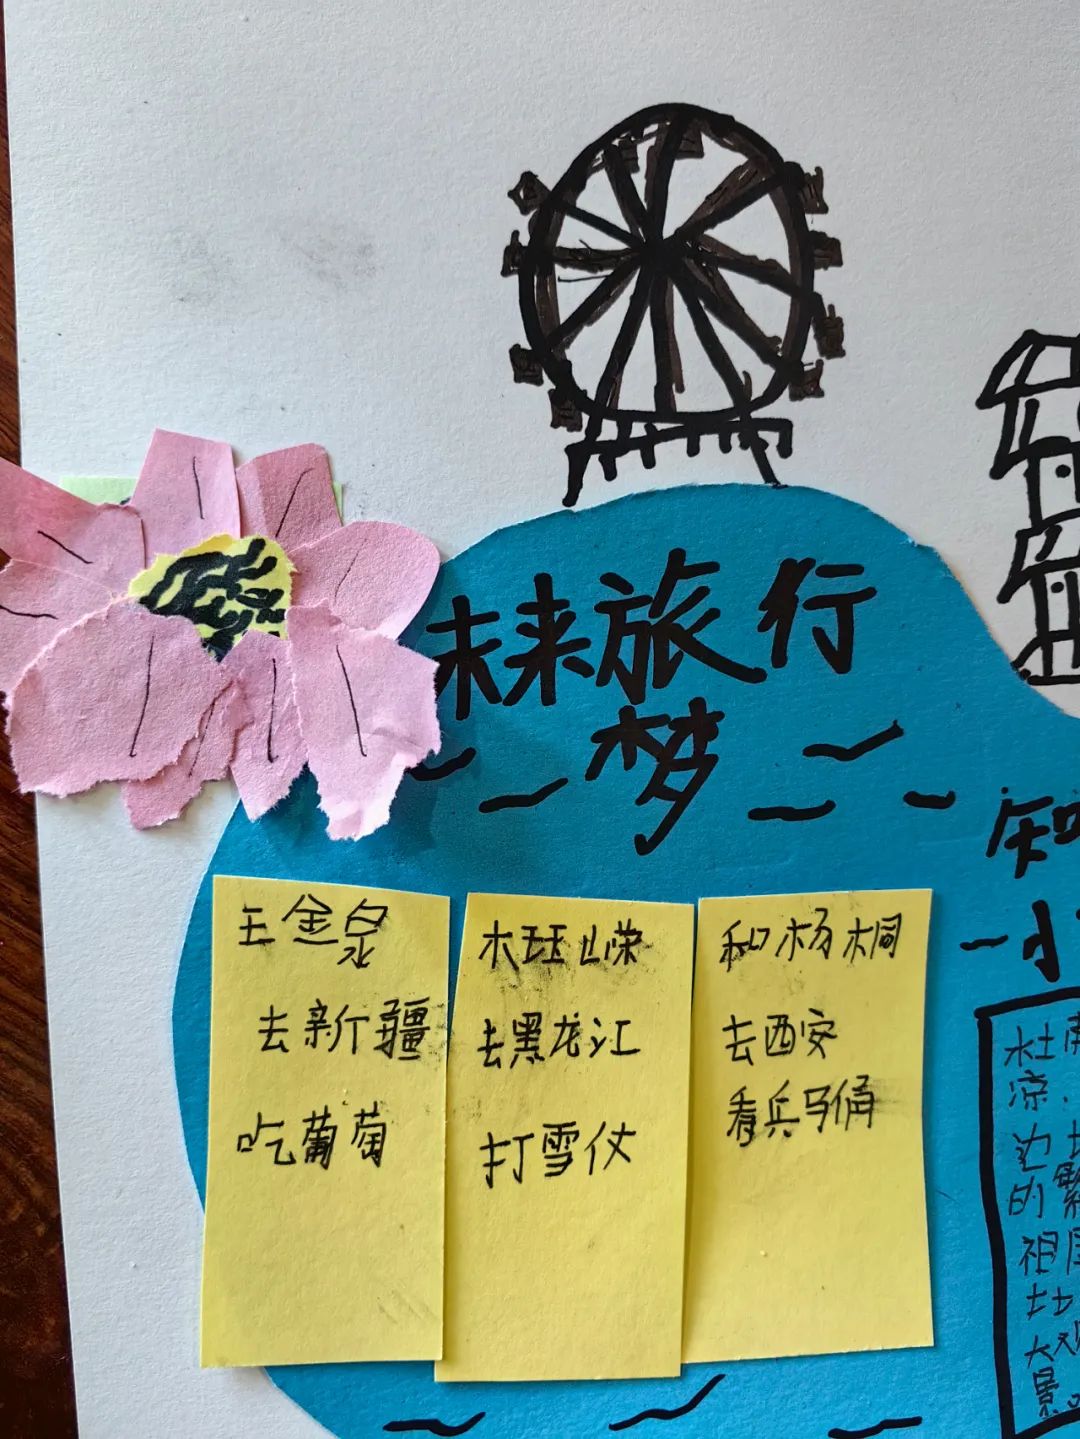 未来旅行
梦
王金泉
去新疆
吃葡萄
木珏山荣
去黑龙江
打雪仗
和杨桐
去西安
看兵马俑
知
小
杜
凉
边
的繁
祖国
壮
大观
景